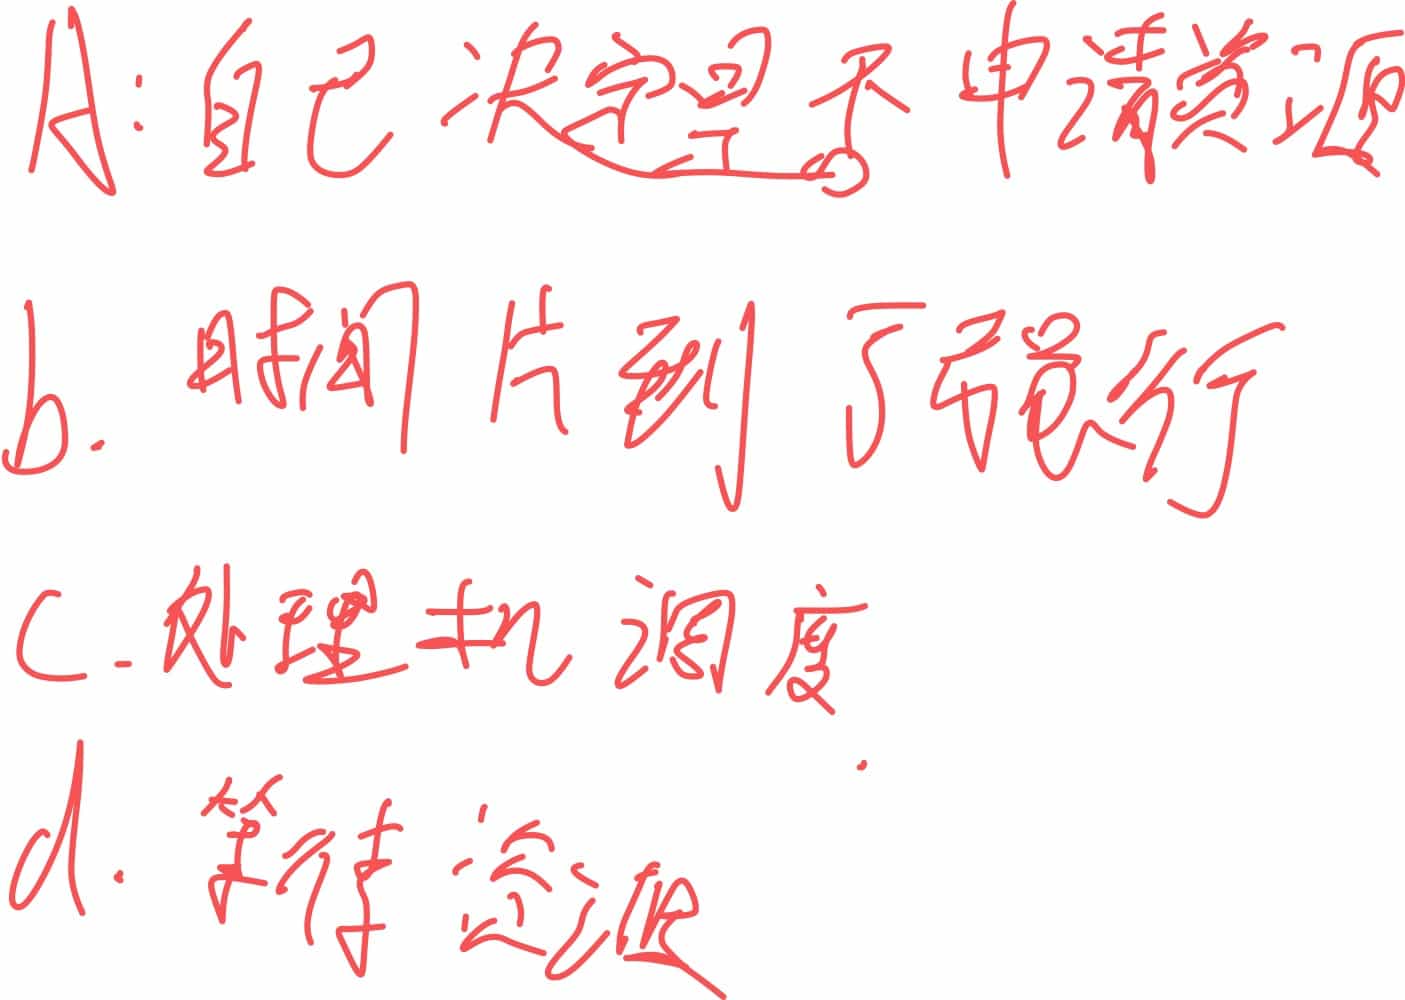 A: 自己决定是不申请资源
b. 时间片到了强行
c. 处理机调度.
d. 等待资源